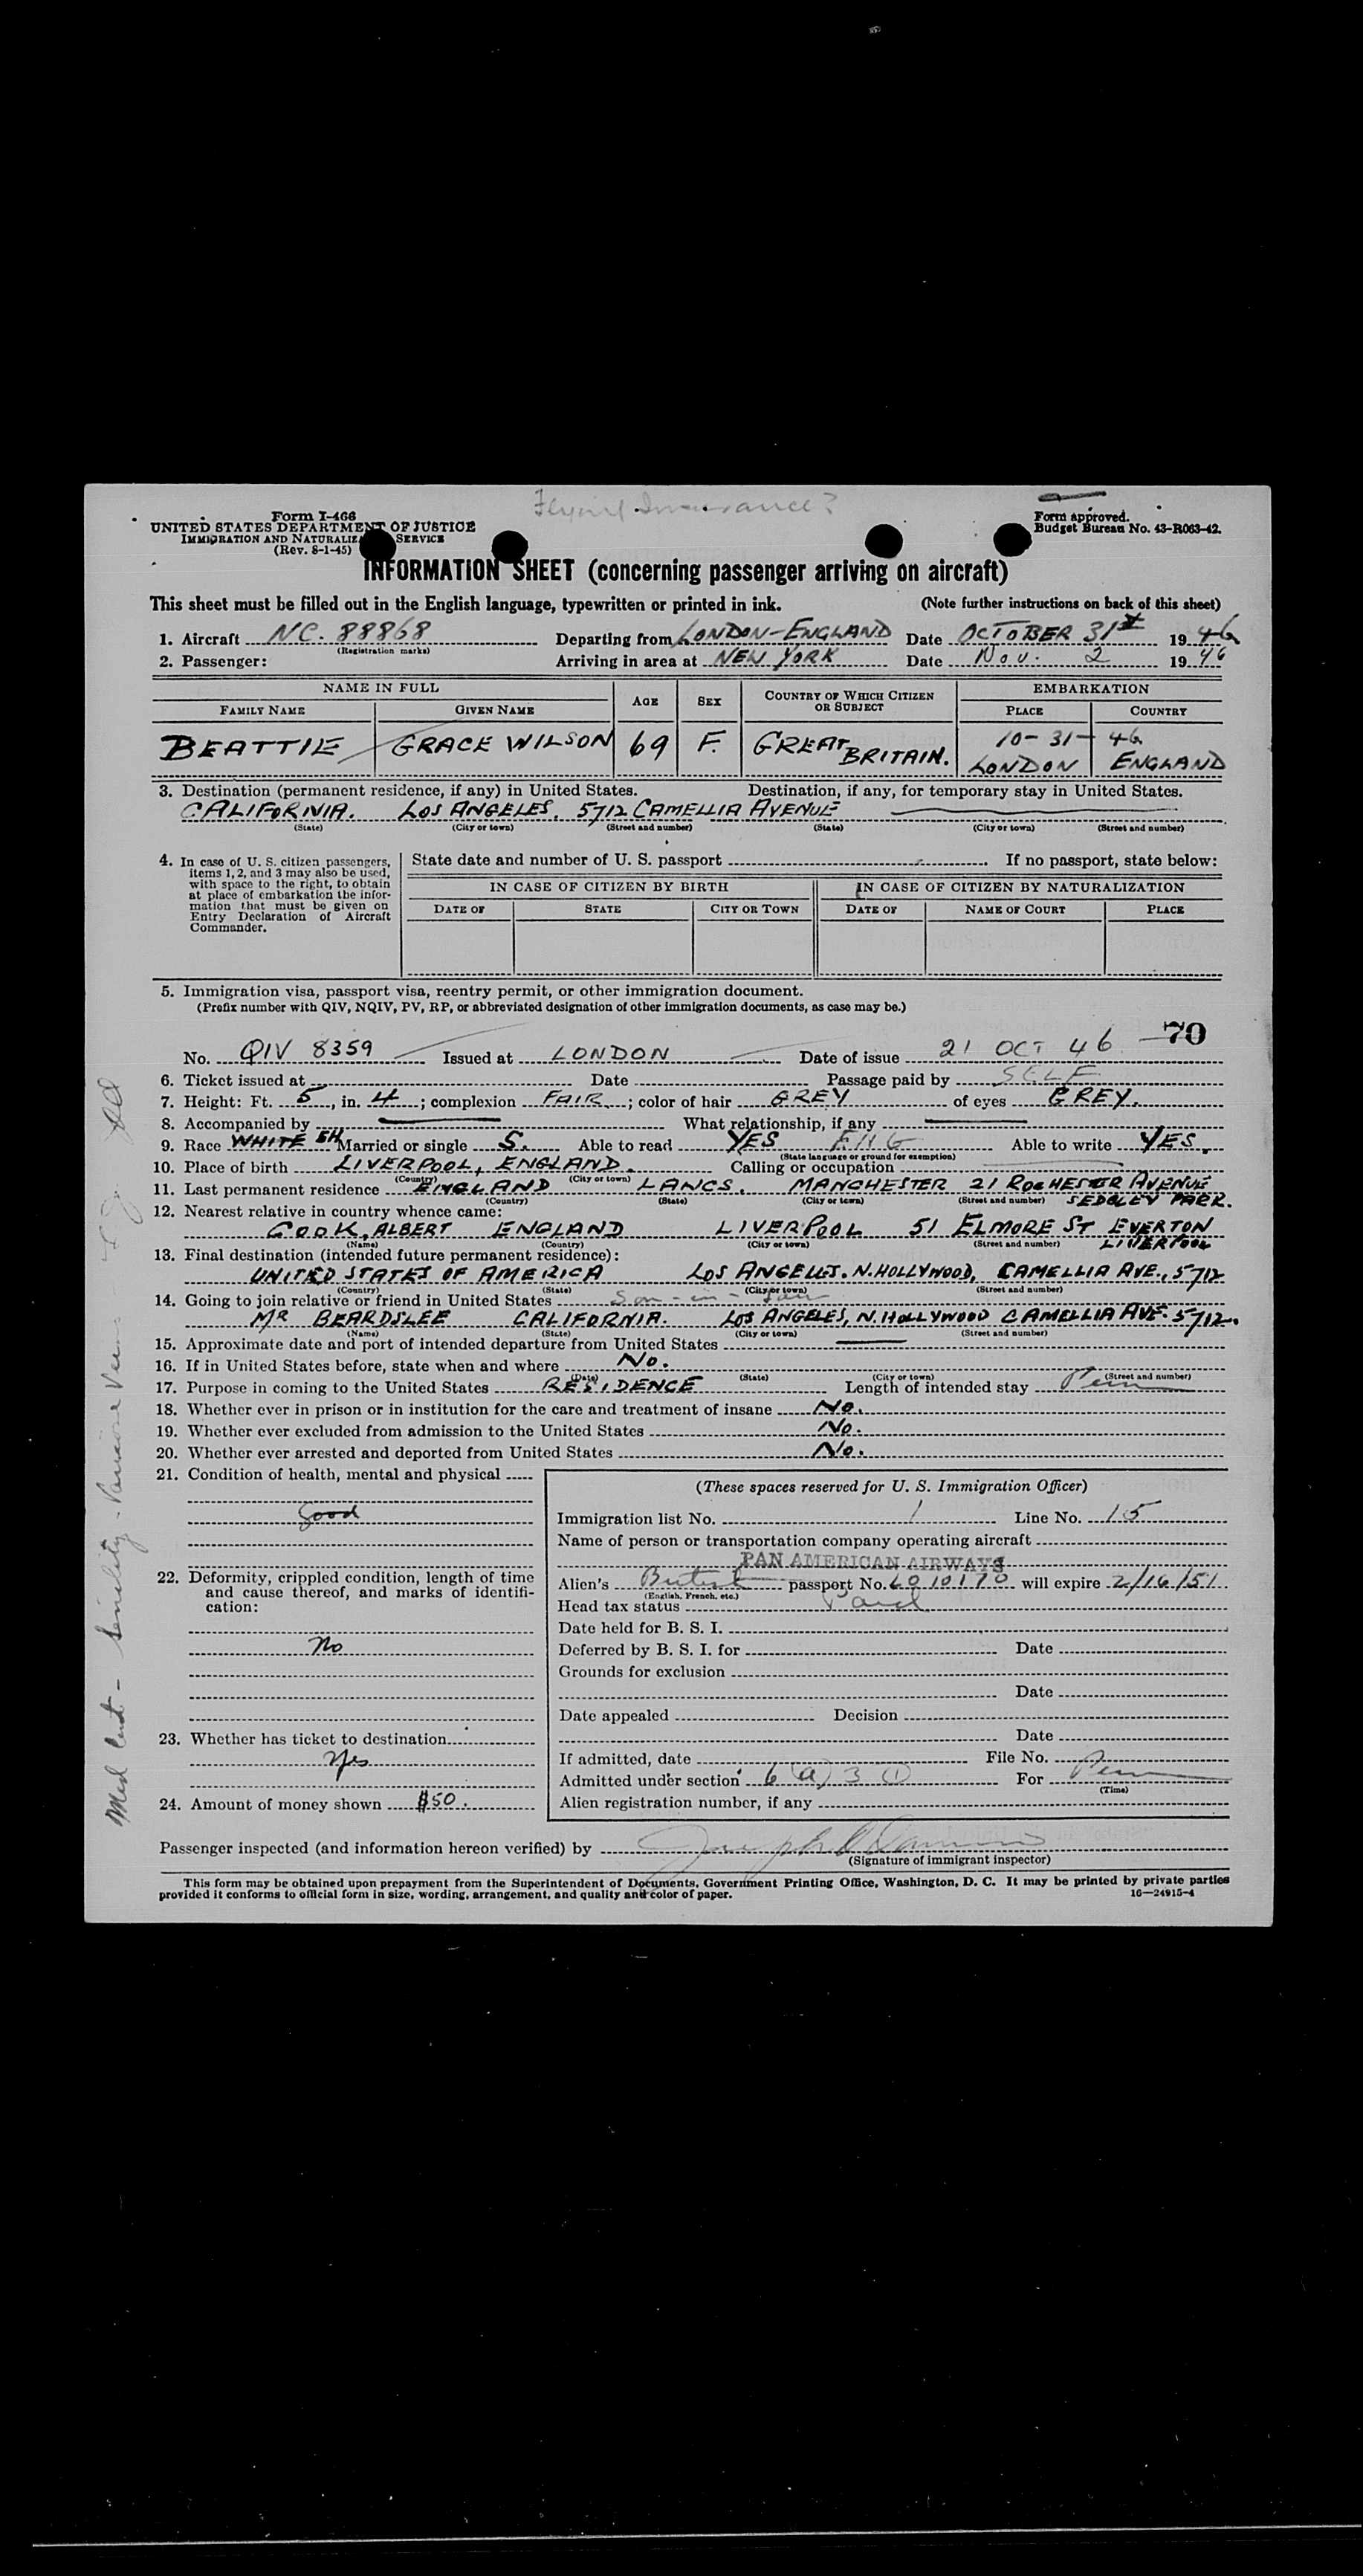 Form I-466
UNITED STATES DEPARTMENT OF JUSTICE
IMMIGRATION AND NATURALIZA SERVICE
(Rev. 8-1-45)
Form approved.
Budget Bureau No. 43-R063-42.
INFORMATION SHEET (concerning passenger arriving on aircraft)
This sheet must be filled out in the English language, typewritten or printed in ink. (Note further instructions on back of this sheet)
1. Aircraft NC. 88868 Departing from LONDON-ENGLAND Date OCTOBER 31st 1946
(Registration marks)
2. Passenger: Arriving in area at NEW YORK Date Nov. 2 1946
NAME IN FULL AGE SEX COUNTRY OF WHICH CITIZEN OR SUBJECT EMBARKATION
FAMILY NAME GIVEN NAME PLACE COUNTRY
BEATTIE GRACE WILSON 69 F. GREAT BRITAIN. 10-31-46 LONDON ENGLAND
3. Destination (permanent residence, if any) in United States. Destination, if any, for temporary stay in United States.
CALIFORNIA. LOS ANGELES. 5712 CAMELLIA AVENUE
(State) (City or town) (Street and number) (State) (City or town) (Street and number)
4. In case of U. S. citizen passengers, items 1, 2, and 3 may also be used, with space to the right, to obtain at place of embarkation the information that must be given on Entry Declaration of Aircraft Commander.
State date and number of U. S. passport If no passport, state below:
IN CASE OF CITIZEN BY BIRTH IN CASE OF CITIZEN BY NATURALIZATION
DATE OF STATE CITY OR TOWN DATE OF NAME OF COURT PLACE
5. Immigration visa, passport visa, reentry permit, or other immigration document.
(Prefix number with QIV, NQIV, PV, RP, or abbreviated designation of other immigration documents, as case may be.)
70
No. QIV 8359 Issued at LONDON Date of issue 21 OCT 46
6. Ticket issued at Date Passage paid by SELF
7. Height: Ft. 5, in. 4; complexion FAIR; color of hair GREY of eyes GREY.
8. Accompanied by What relationship, if any
9. Race WHITE Married or single S. Able to read YES ENG Able to write YES.
(State language or ground for exemption)
10. Place of birth LIVERPOOL, ENGLAND. Calling or occupation
(Country) (City or town)
11. Last permanent residence ENGLAND LANCS. MANCHESTER 21 ROCHESTER AVENUE
(Country) (State) (City or town) (Street and number) SEDGLEY PARK.
12. Nearest relative in country whence came:
COOK, ALBERT ENGLAND LIVERPOOL 51 ELMORE ST EVERTON
(Name) (Country) (City or town) (Street and number) LIVERPOOL
13. Final destination (intended future permanent residence):
UNITED STATES OF AMERICA LOS ANGELES. N. HOLLYWOOD, CAMELLIA AVE., 5712
(Country) (State) (City or town) (Street and number)
14. Going to join relative or friend in United States Son-in-law
MR BEARDSLEE CALIFORNIA. LOS ANGELES, N. HOLLYWOOD CAMELLIA AVE. 5712.
(Name) (State) (City or town) (Street and number)
15. Approximate date and port of intended departure from United States
16. If in United States before, state when and where No.
(Date) (State) (City or town) (Street and number)
17. Purpose in coming to the United States RESIDENCE Length of intended stay Perm
18. Whether ever in prison or in institution for the care and treatment of insane No.
19. Whether ever excluded from admission to the United States No.
20. Whether ever arrested and deported from United States No.
21. Condition of health, mental and physical
Good
22. Deformity, crippled condition, length of time and cause thereof, and marks of identification:
No
23. Whether has ticket to destination
Yes
24. Amount of money shown $50.
(These spaces reserved for U. S. Immigration Officer)
Immigration list No. 1 Line No. 15
Name of person or transportation company operating aircraft
PAN AMERICAN AIRWAYS
Alien's British passport No. L0 10170 will expire 2/16/51
(English, French, etc.)
Head tax status Paid
Date held for B. S. I.
Deferred by B. S. I. for Date
Grounds for exclusion
Date
Date appealed Decision
Date
If admitted, date File No.
Admitted under section 6 (a) 3 (1) For Perm
(Time)
Alien registration number, if any
Passenger inspected (and information hereon verified) by
(Signature of immigrant inspector)
This form may be obtained upon prepayment from the Superintendent of Documents, Government Printing Office, Washington, D. C. It may be printed by private parties
provided it conforms to official form in size, wording, arrangement, and quality and color of paper. 16—24915-4
Med Cert - Senility